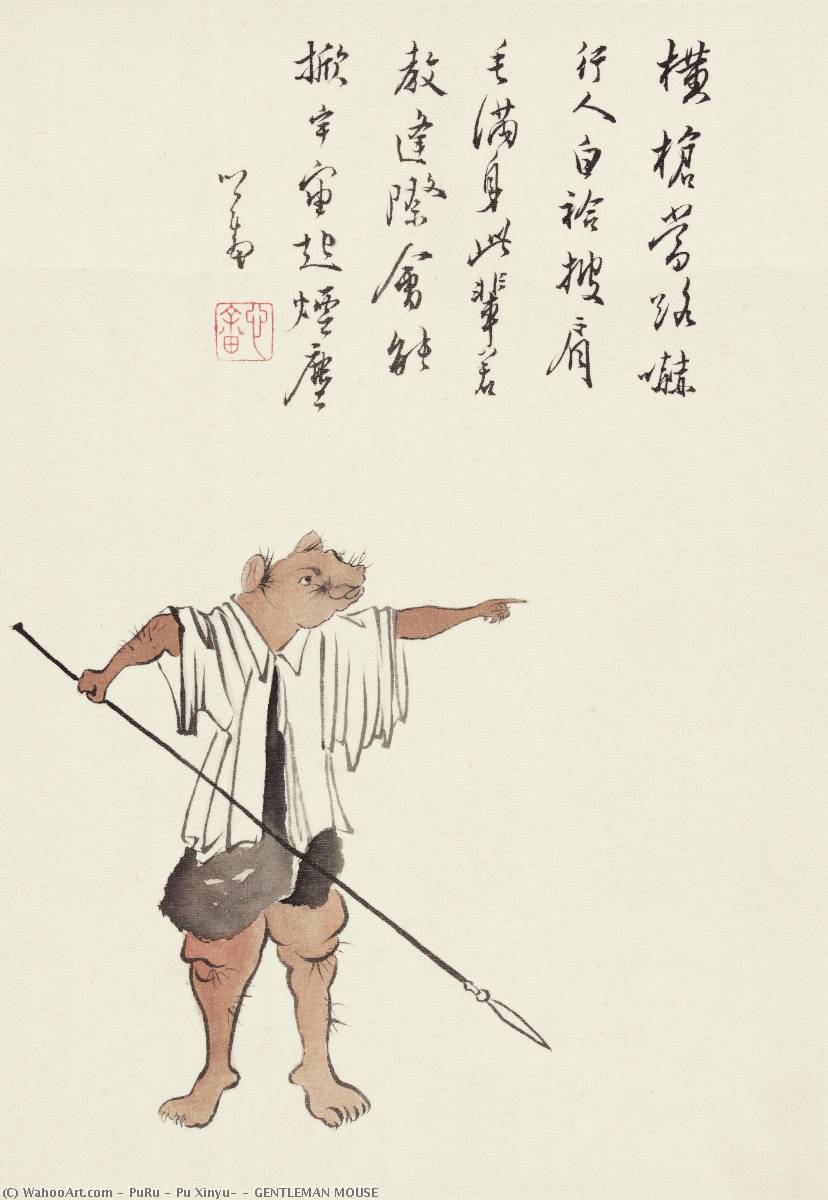 橫槍當路嚇
行人白袷披肩
毛滿身此輩若
教逢際會能
掀宇宙起煙塵
心畬
心畬
(C) WahooArt.com - PuRu - Pu Xinyu- - GENTLEMAN MOUSE